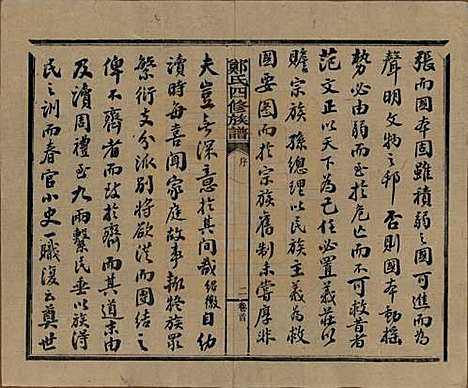 張而國本固雖積弱之國可進而為
聲明文物之邦否則國本動搖
勢必由弱而至於危亡而不可救昔者
范文正以天下為己任必置義莊以
贍宗族孫總理以民族主義為救
國要圖而於宗族舊制未嘗厚非
夫豈無深意於其間哉紹徽自幼
讀時每喜聞家庭故事輒於族眾
繁衍支分派別將欲渙而團結之
俾不齊者而政於齊而其道末由
及讀周禮至九兩繫民垂以族得
民之訓而春官小史一職復云奠世
鄭氏四修族譜
序
二
卷首